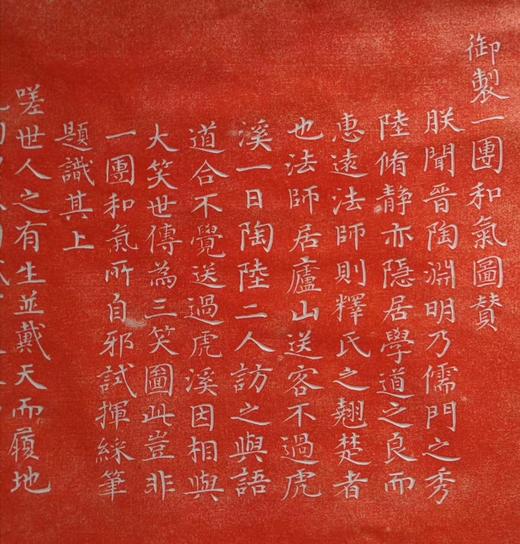 御製一團和氣圖贊
朕聞晉陶淵明乃儒門之秀
陸脩靜亦隱居學道之良而
惠遠法師則釋氏之翹楚者
也法師居廬山送客不過虎
溪一日陶陸二人訪之與語
道合不覺送過虎溪因相與
大笑世傳為三笑圖此豈非
一團和氣所自邪試揮綵筆
題識其上
嗟世人之有生並戴天而履地